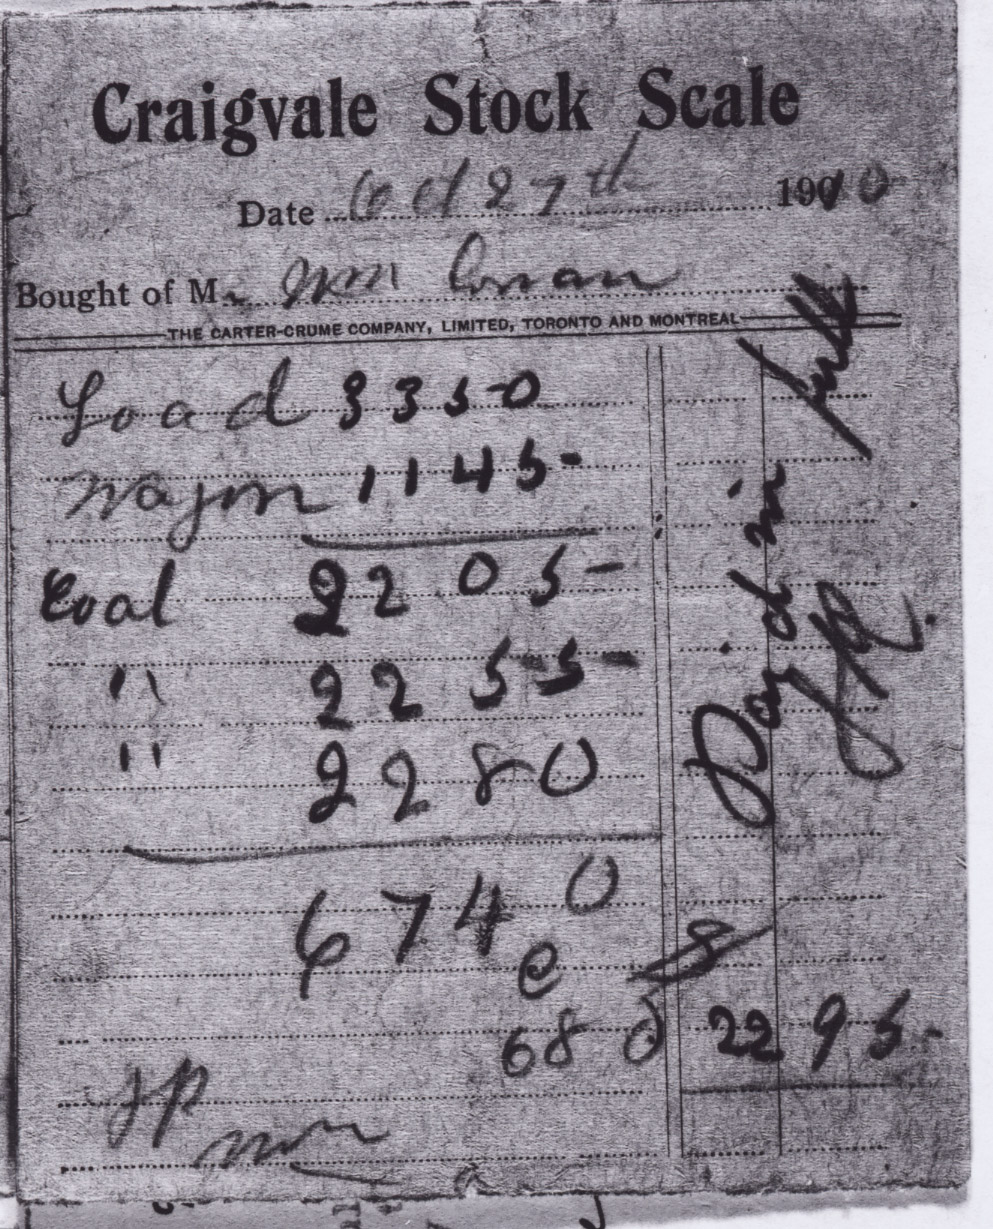 Craigvale Stock Scale
Date Oct 27th 1910
Bought of Mr Wm
THE CARTER-CRUME COMPANY, LIMITED, TORONTO AND MONTREAL
Load 3350
Wagon 1145
Coal 2205
" 2255
" 2280
6740
@
680 22 95
Paid in full